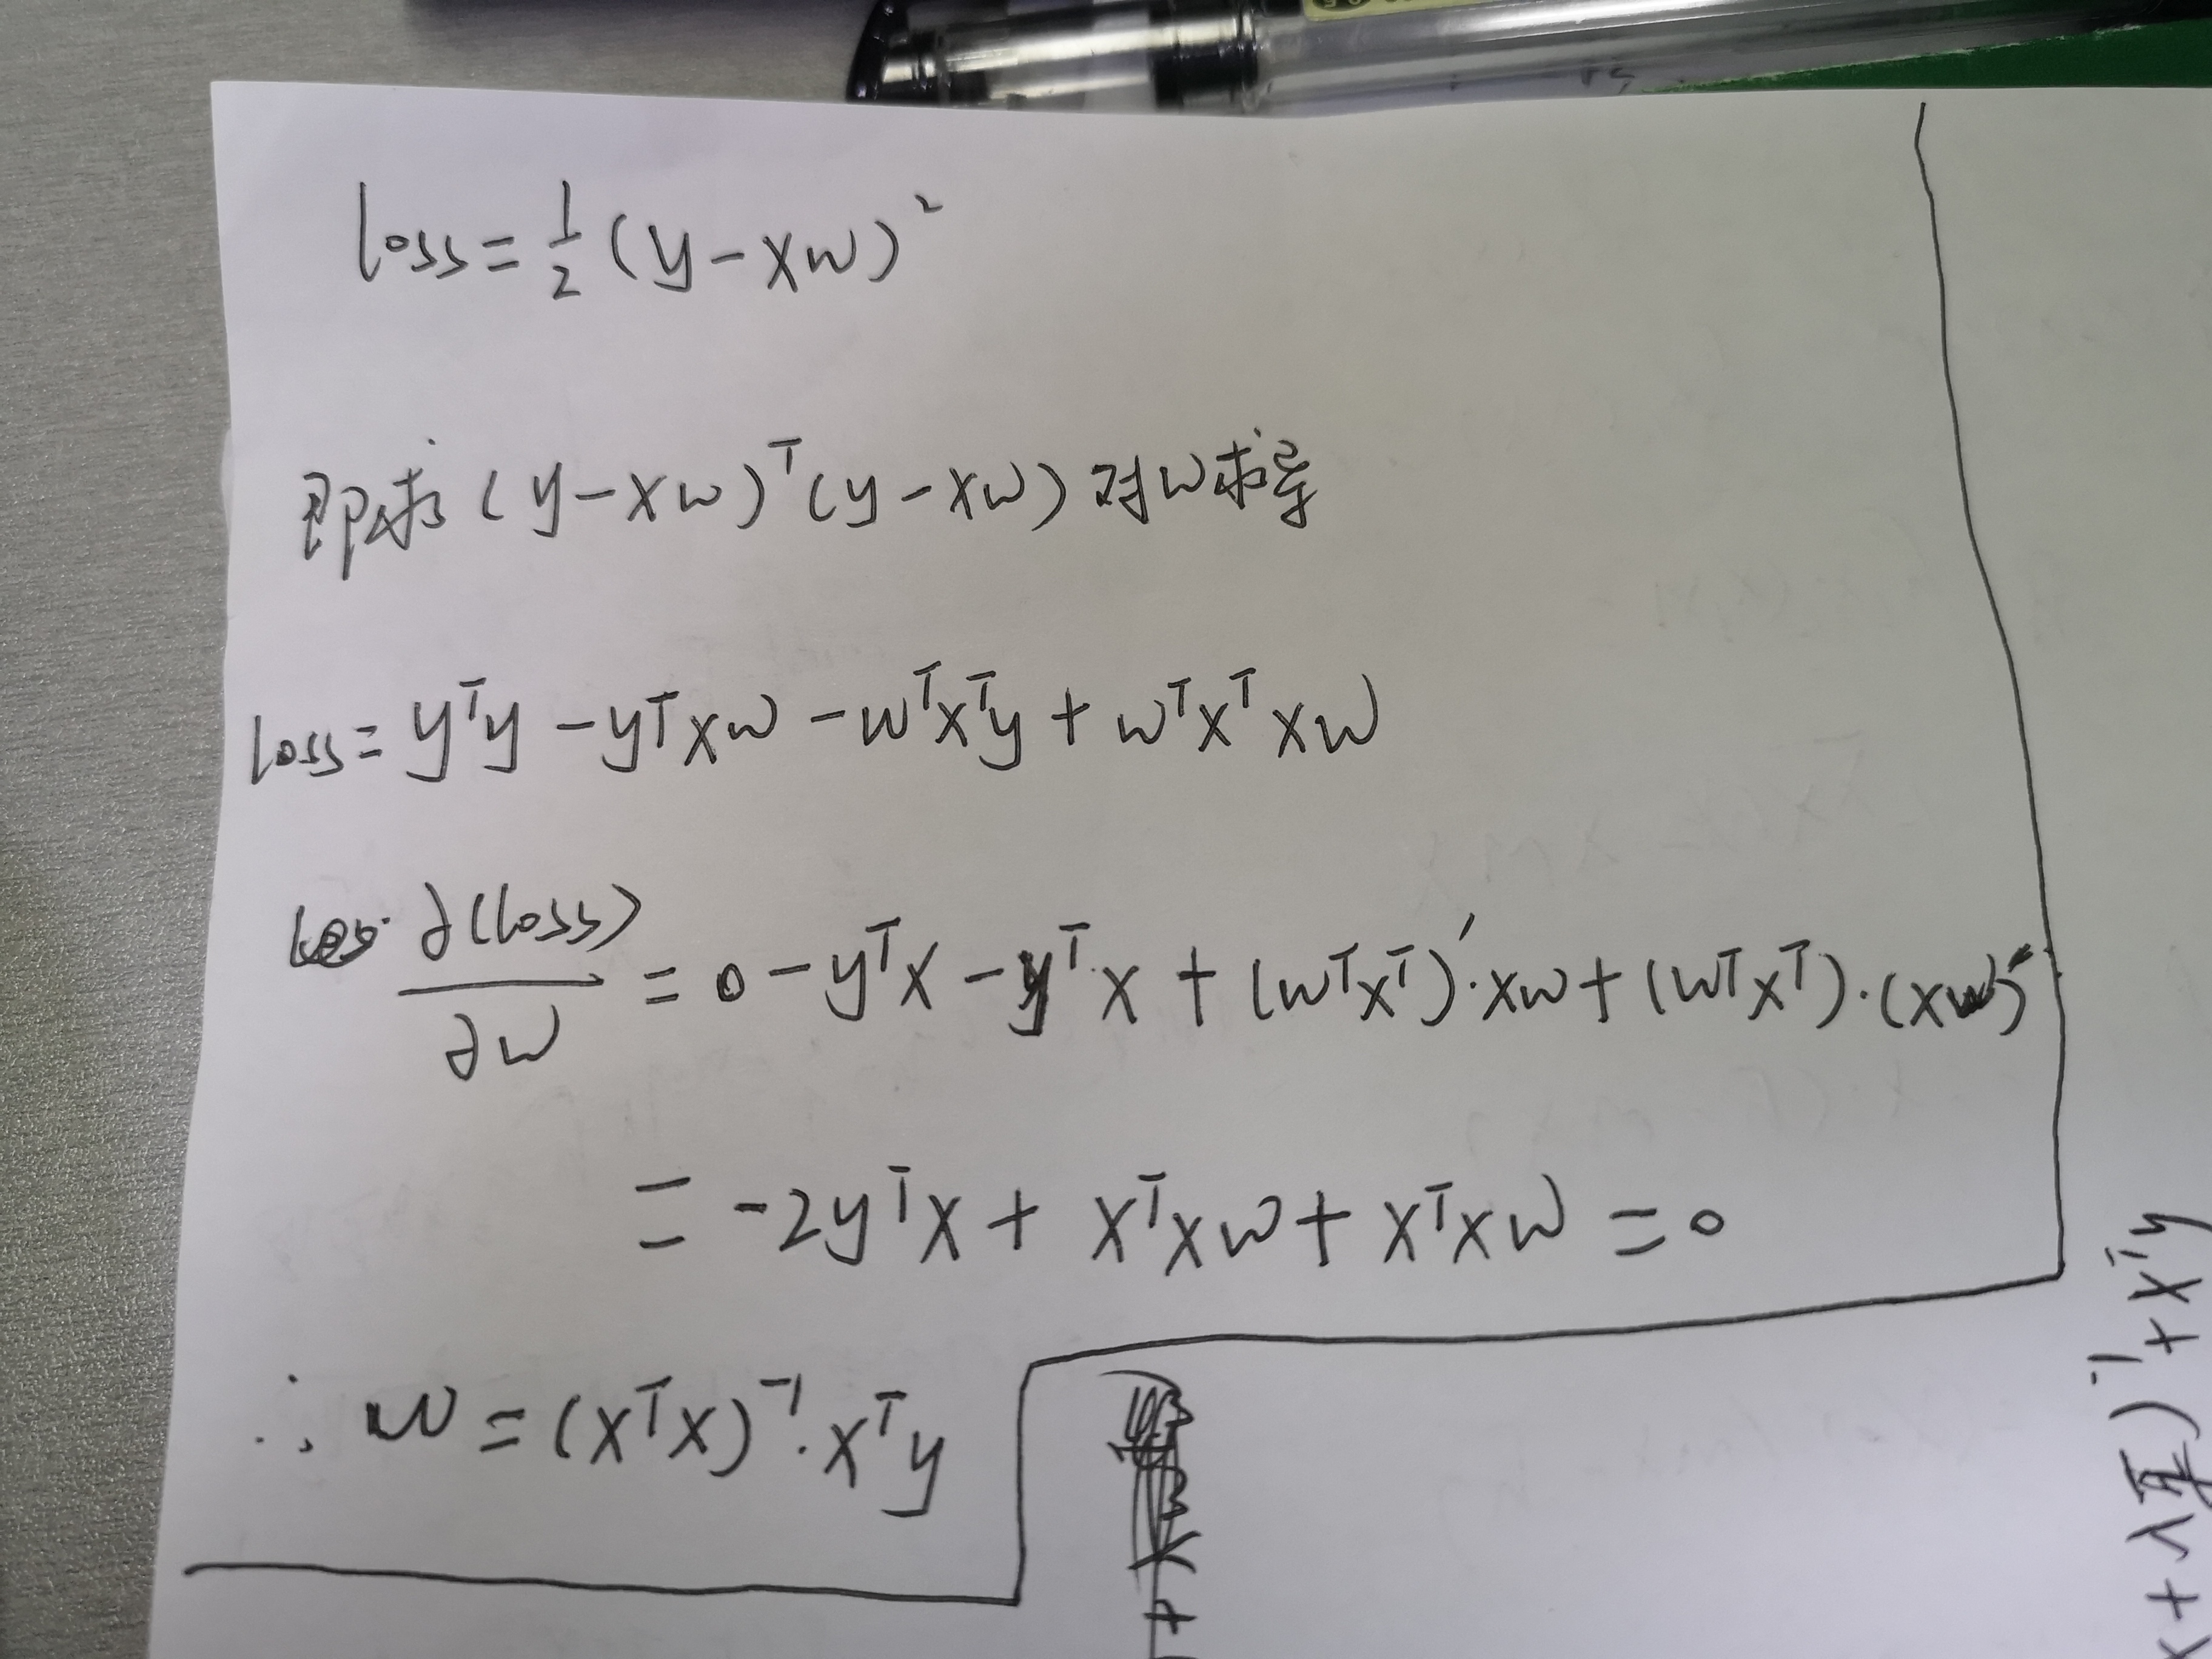 loss = 1/2 (y - xw)²
即求 (y - xw)ᵀ(y - xw) 对w求导
loss = yᵀy - yᵀxw - wᵀxᵀy + wᵀxᵀxw
∂(loss)/∂w = 0 - yᵀx - yᵀx + (wᵀxᵀ)′·xw + (wᵀxᵀ)·(xw)′
= -2yᵀx + xᵀxw + xᵀxw = 0
∴ w = (xᵀx)⁻¹·xᵀy
)⁻¹ + xᵀy
x + λ